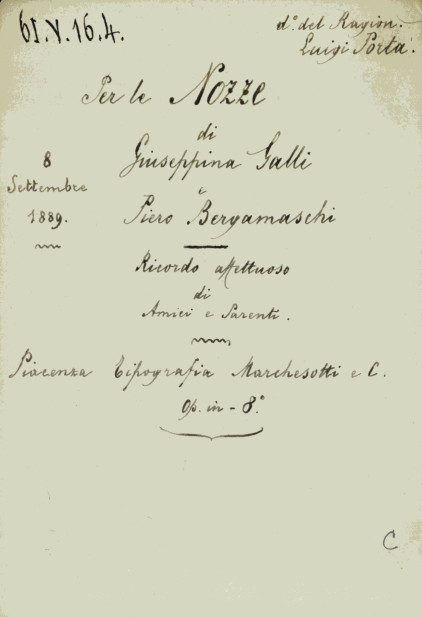 6I.V.16.4.
d.º del Ragion.
Luigi Porta.
Per le Nozze
di
Giuseppina Galli
e
Piero Bergamaschi
8
Settembre
1889.
Ricordo affettuoso
di
Amici e Parenti.
Piacenza Tipografia Marchesotti e C.
Op. in-8.º
C